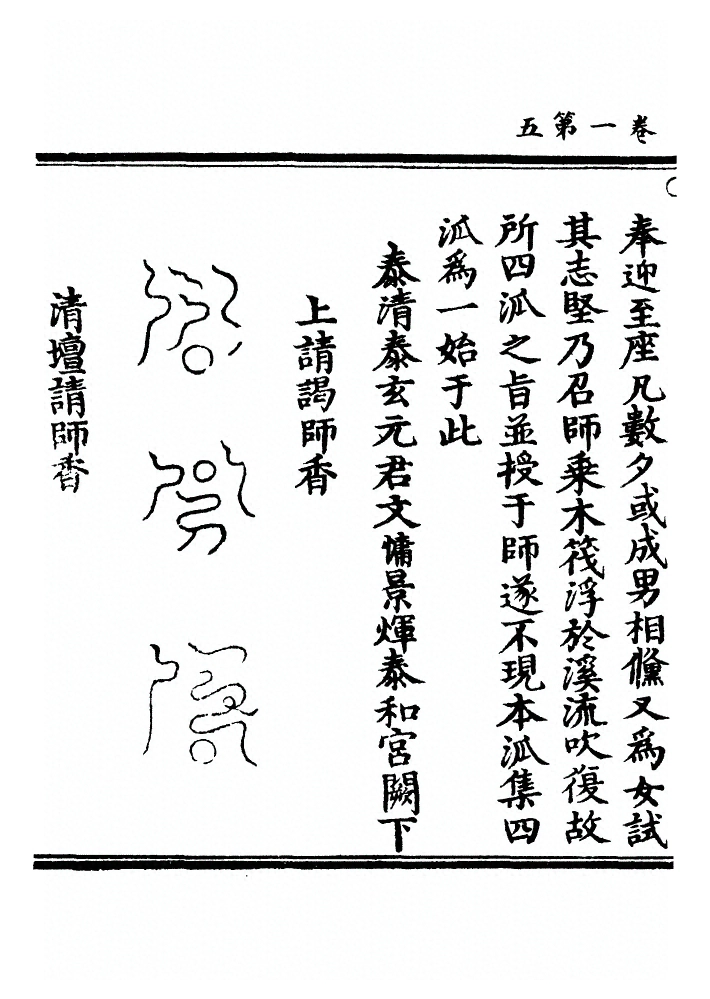 卷一第五
奉迎至座凡數夕或成男相儻又爲女試
其志堅乃召師乘木筏浮於溪流吹復故
所四派之旨並授于師遂不現本派集四
派爲一始于此
泰清泰玄元君文慵景煇泰和宮闕下
上請謁師香
清壇請師香